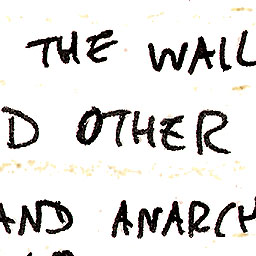 THE WALL
D OTHER
AND ANARCH